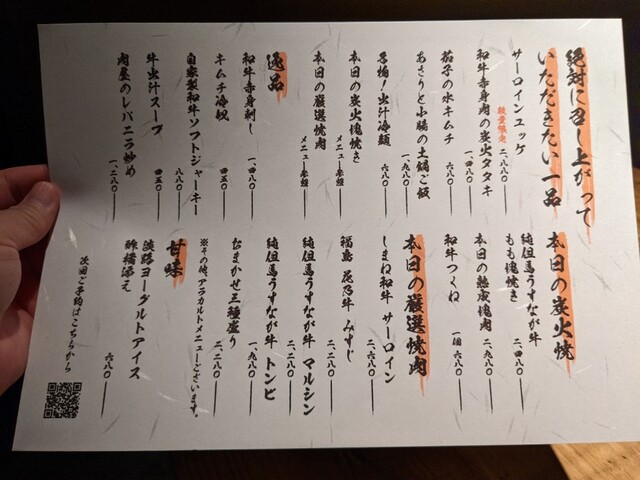 絶対に召し上がって
いただきたい一品
サーロインユッケ
数量限定 二、二八〇
和牛赤身肉の炭火タタキ
一、四八〇
茄子の水キムチ
六八〇
あさりと小腸の土鍋ご飯
一、九八〇
出汁冷麺
六八〇
本日の炭火塊焼き
メニュー参照
本日の厳選焼肉
メニュー参照
逸品
和牛赤身刺し
一、四八〇
キムチ冷奴
四五〇
自家製和牛ソフトジャーキー
八八〇
牛出汁スープ
四五〇
肉屋のレバニラ炒め
一、二八〇
本日の炭火焼
純但馬うすなが牛
もも塊焼き
二、四八〇
本日の熟成塊肉
二、九八〇
和牛つくね
一個 六八〇
本日の厳選焼肉
しまね和牛 サーロイン
二、六八〇
福島 花乃牛 みすじ
二、二八〇
純但馬うすなが牛 マルシン
二、二八〇
純但馬うすなが牛 トンビ
一、九八〇
おまかせ三種盛り
二、二八〇
※その他、アラカルトメニューございます。
甘味
淡路ヨーグルトアイス
酢橘添え
六八〇
次回ご予約はこちらから